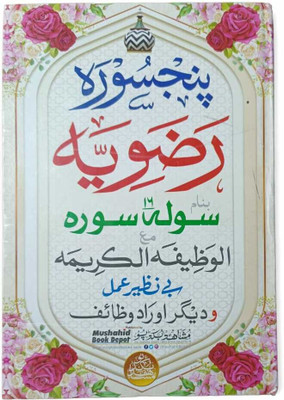 پنجسورہ
رضویہ
بنام
سولہ ۱۶ سورہ
مع
الوظیفہ الکریمہ
بے نظیر عمل
و دیگر اوراد وظائف
Mushahid
Book Depot